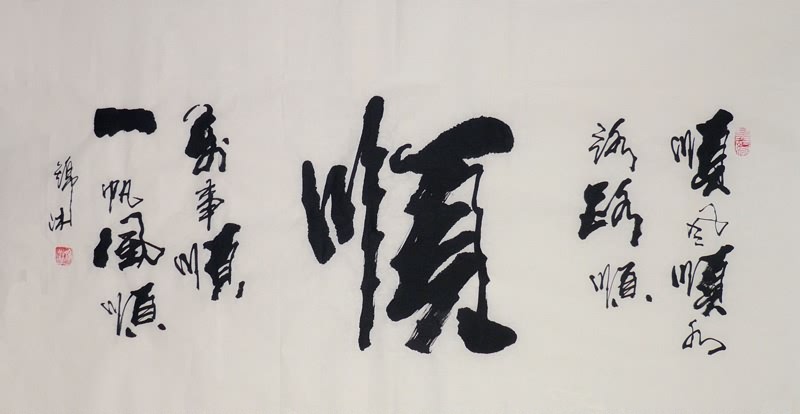 順風順水
路路順
順
萬事順
一帆風順